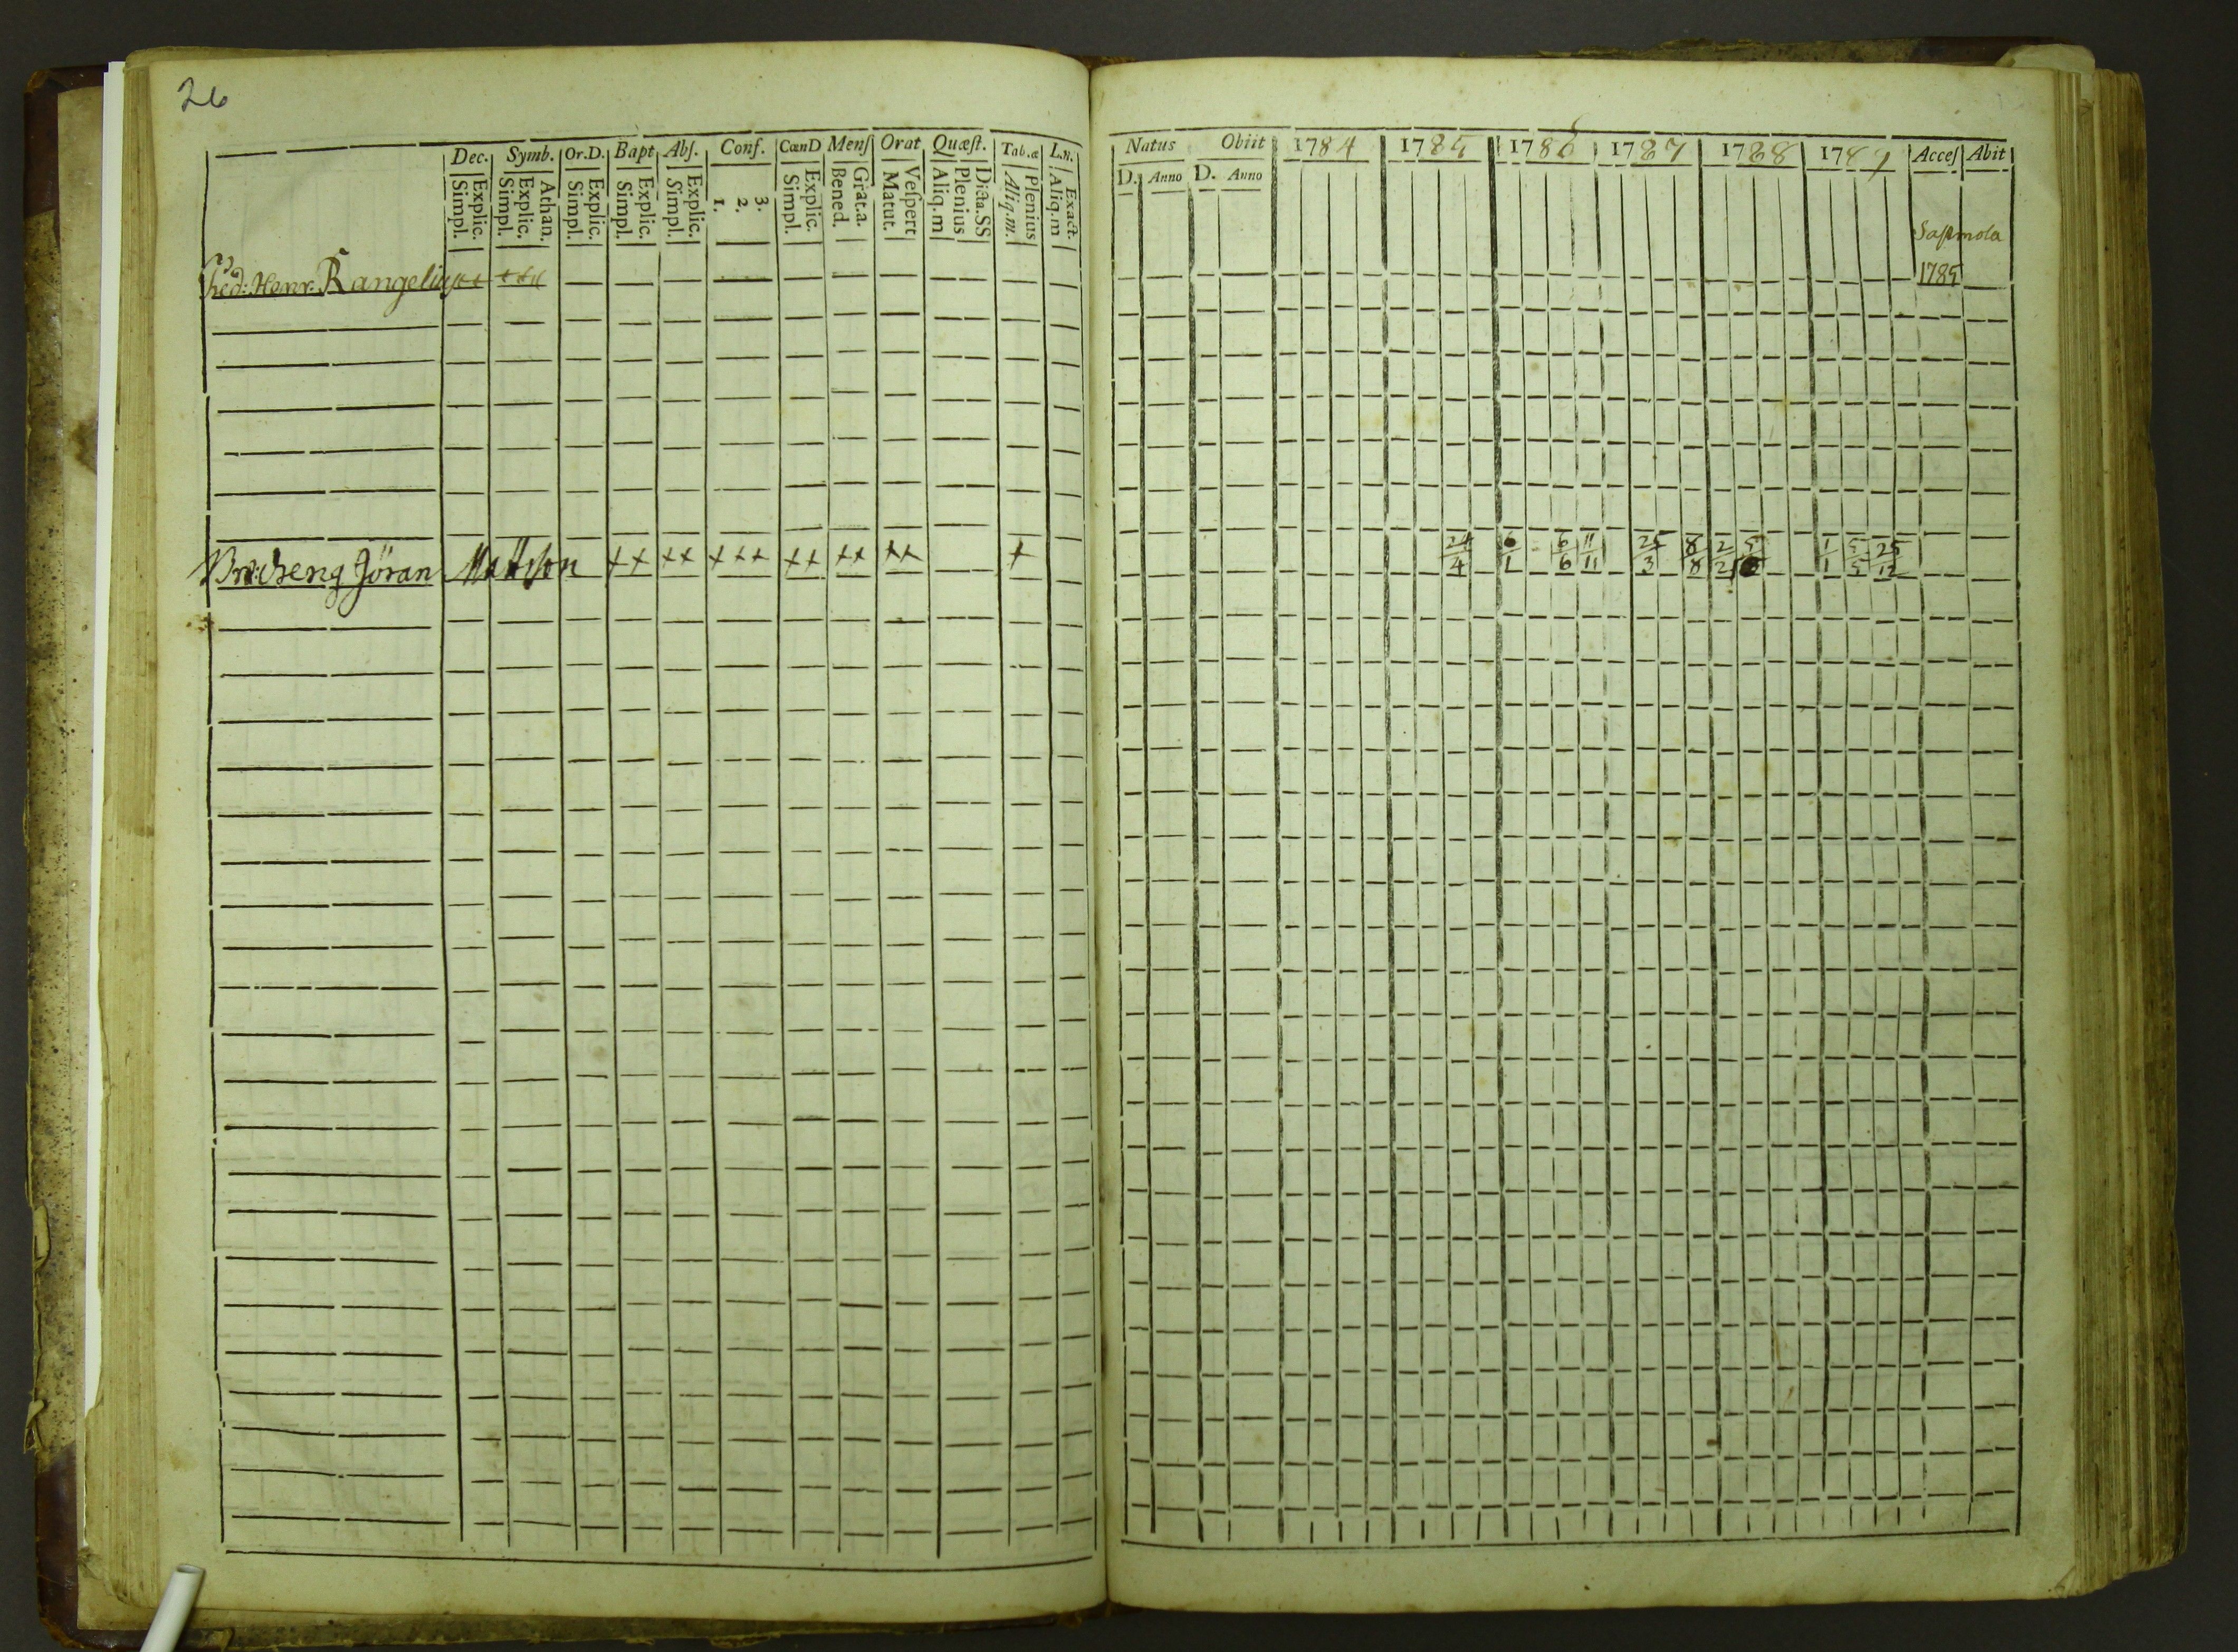 26
Dec. Symb. Or.D. Bapt. Abſ. Conf. CœnD Menſ Orat Quæſt. Tab.æ L.n.
Simpl. Explic. Simpl. Explic. Athan. Simpl. Explic. Simpl. Explic. Simpl. Explic. 1. 2. 3. Simpl. Explic. Bened. Grat.a. Matut. Veſpert Aliq.m Plenius Dicta.SS Aliq.m. Plenius Aliq.m Exact.
Henr. Rangelius ++ +++
Jöran Mattsson ++ ++ +++ ++ ++ ++ +
Natus Obiit 1784 1785 1786 1787 1788 1789 Acceſ Abit
D. Anno D. Anno
Saſtmola
1785
24/4 6/1 6/6 11/11 25/3 8/8 2/2 1/1 5/5 25/12